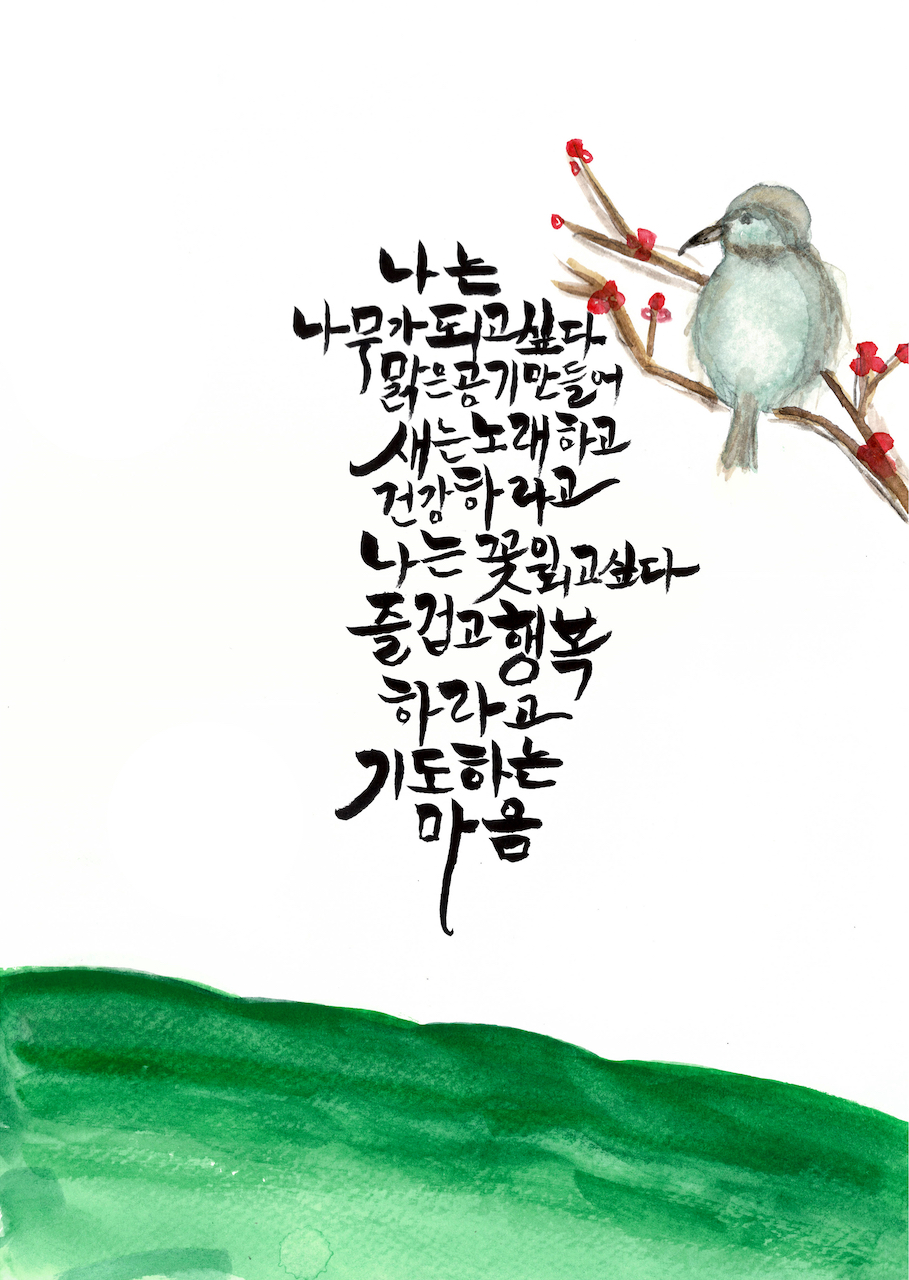 나는
나무가 되고 싶다
맑은 공기 만들어
새는 노래하고
건강하라고
나는 꽃이 되고 싶다
즐겁고 행복
하라고
기도하는
마음